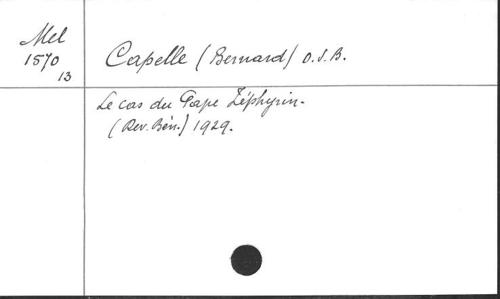 Mel
1570
13
Capelle (Bernard) O.S.B.
Le cas du Pape Zéphyrin.
(Rev. Bén.) 1929.